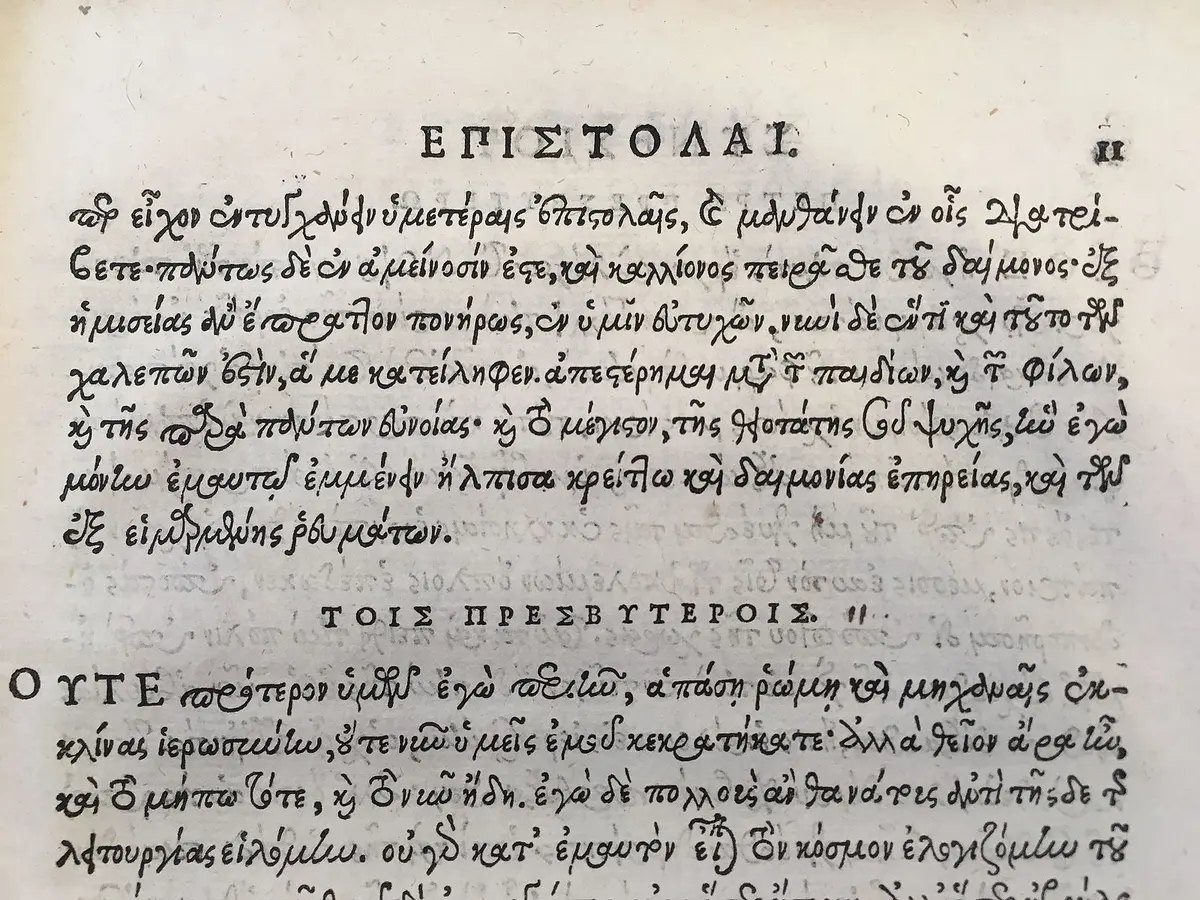 ΕΠΙΣΤΟΛΑΙ. 11
περ εἶχον ἐντυγχάνειν ὑμετέραις ἐπιστολαῖς, καὶ μανθάνειν ἐν οἷς διατρί-
βετε· πάντως δὲ ἐν ἀμείνοσίν ἐστε, καὶ καλλίονος πειρᾶσθε τοῦ δαίμονος· ἐξ
ἡμισείας ἂν ἔπραττον πονήρως, ἐν ὑμῖν εὐτυχῶν. νυνὶ δὲ ἕντι καὶ τοῦτο τῶν
χαλεπῶν ἐστὶν, ἅ με κατείληφεν. ἀπεστέρημαι μετὰ τῶν παιδίων, καὶ τῶν φίλων,
καὶ τῆς παρὰ πάντων εὐνοίας· καὶ τὸ μέγιστον, τῆς θειοτάτης σου ψυχῆς, ἣν ἐγὼ
μόνην ἐμαυτῷ ἐμμένειν ἤλπισα κρείττω καὶ δαιμονίας ἐπηρείας, καὶ τῶν
ἐξ εἱμαρμένης ῥευμάτων.
ΤΟΙΣ ΠΡΕΣΒΥΤΕΡΟΙΣ. 11.
ΟΥΤΕ πρότερον ὑμῶν ἐγὼ περιῆν, ἁπάσῃ ῥώμῃ καὶ μηχαναῖς ἐκ-
κλίνας ἱερωσύνην, οὔτε νῦν ὑμεῖς ἐμοῦ κεκρατήκατε· ἀλλὰ θεῖον ἄρα ἦν,
καὶ τὸ μήπω τότε, καὶ τὸ νῦν ἤδη. ἐγὼ δὲ πολλοὺς ἂν θανάτους ἀντὶ τῆς δε τῆς
λειτουργίας εἱλόμην. οὐ γὰρ κατ' ἐμαυτὸν εἶναι τὸν κόσμον ἐλογιζόμην τοῦ